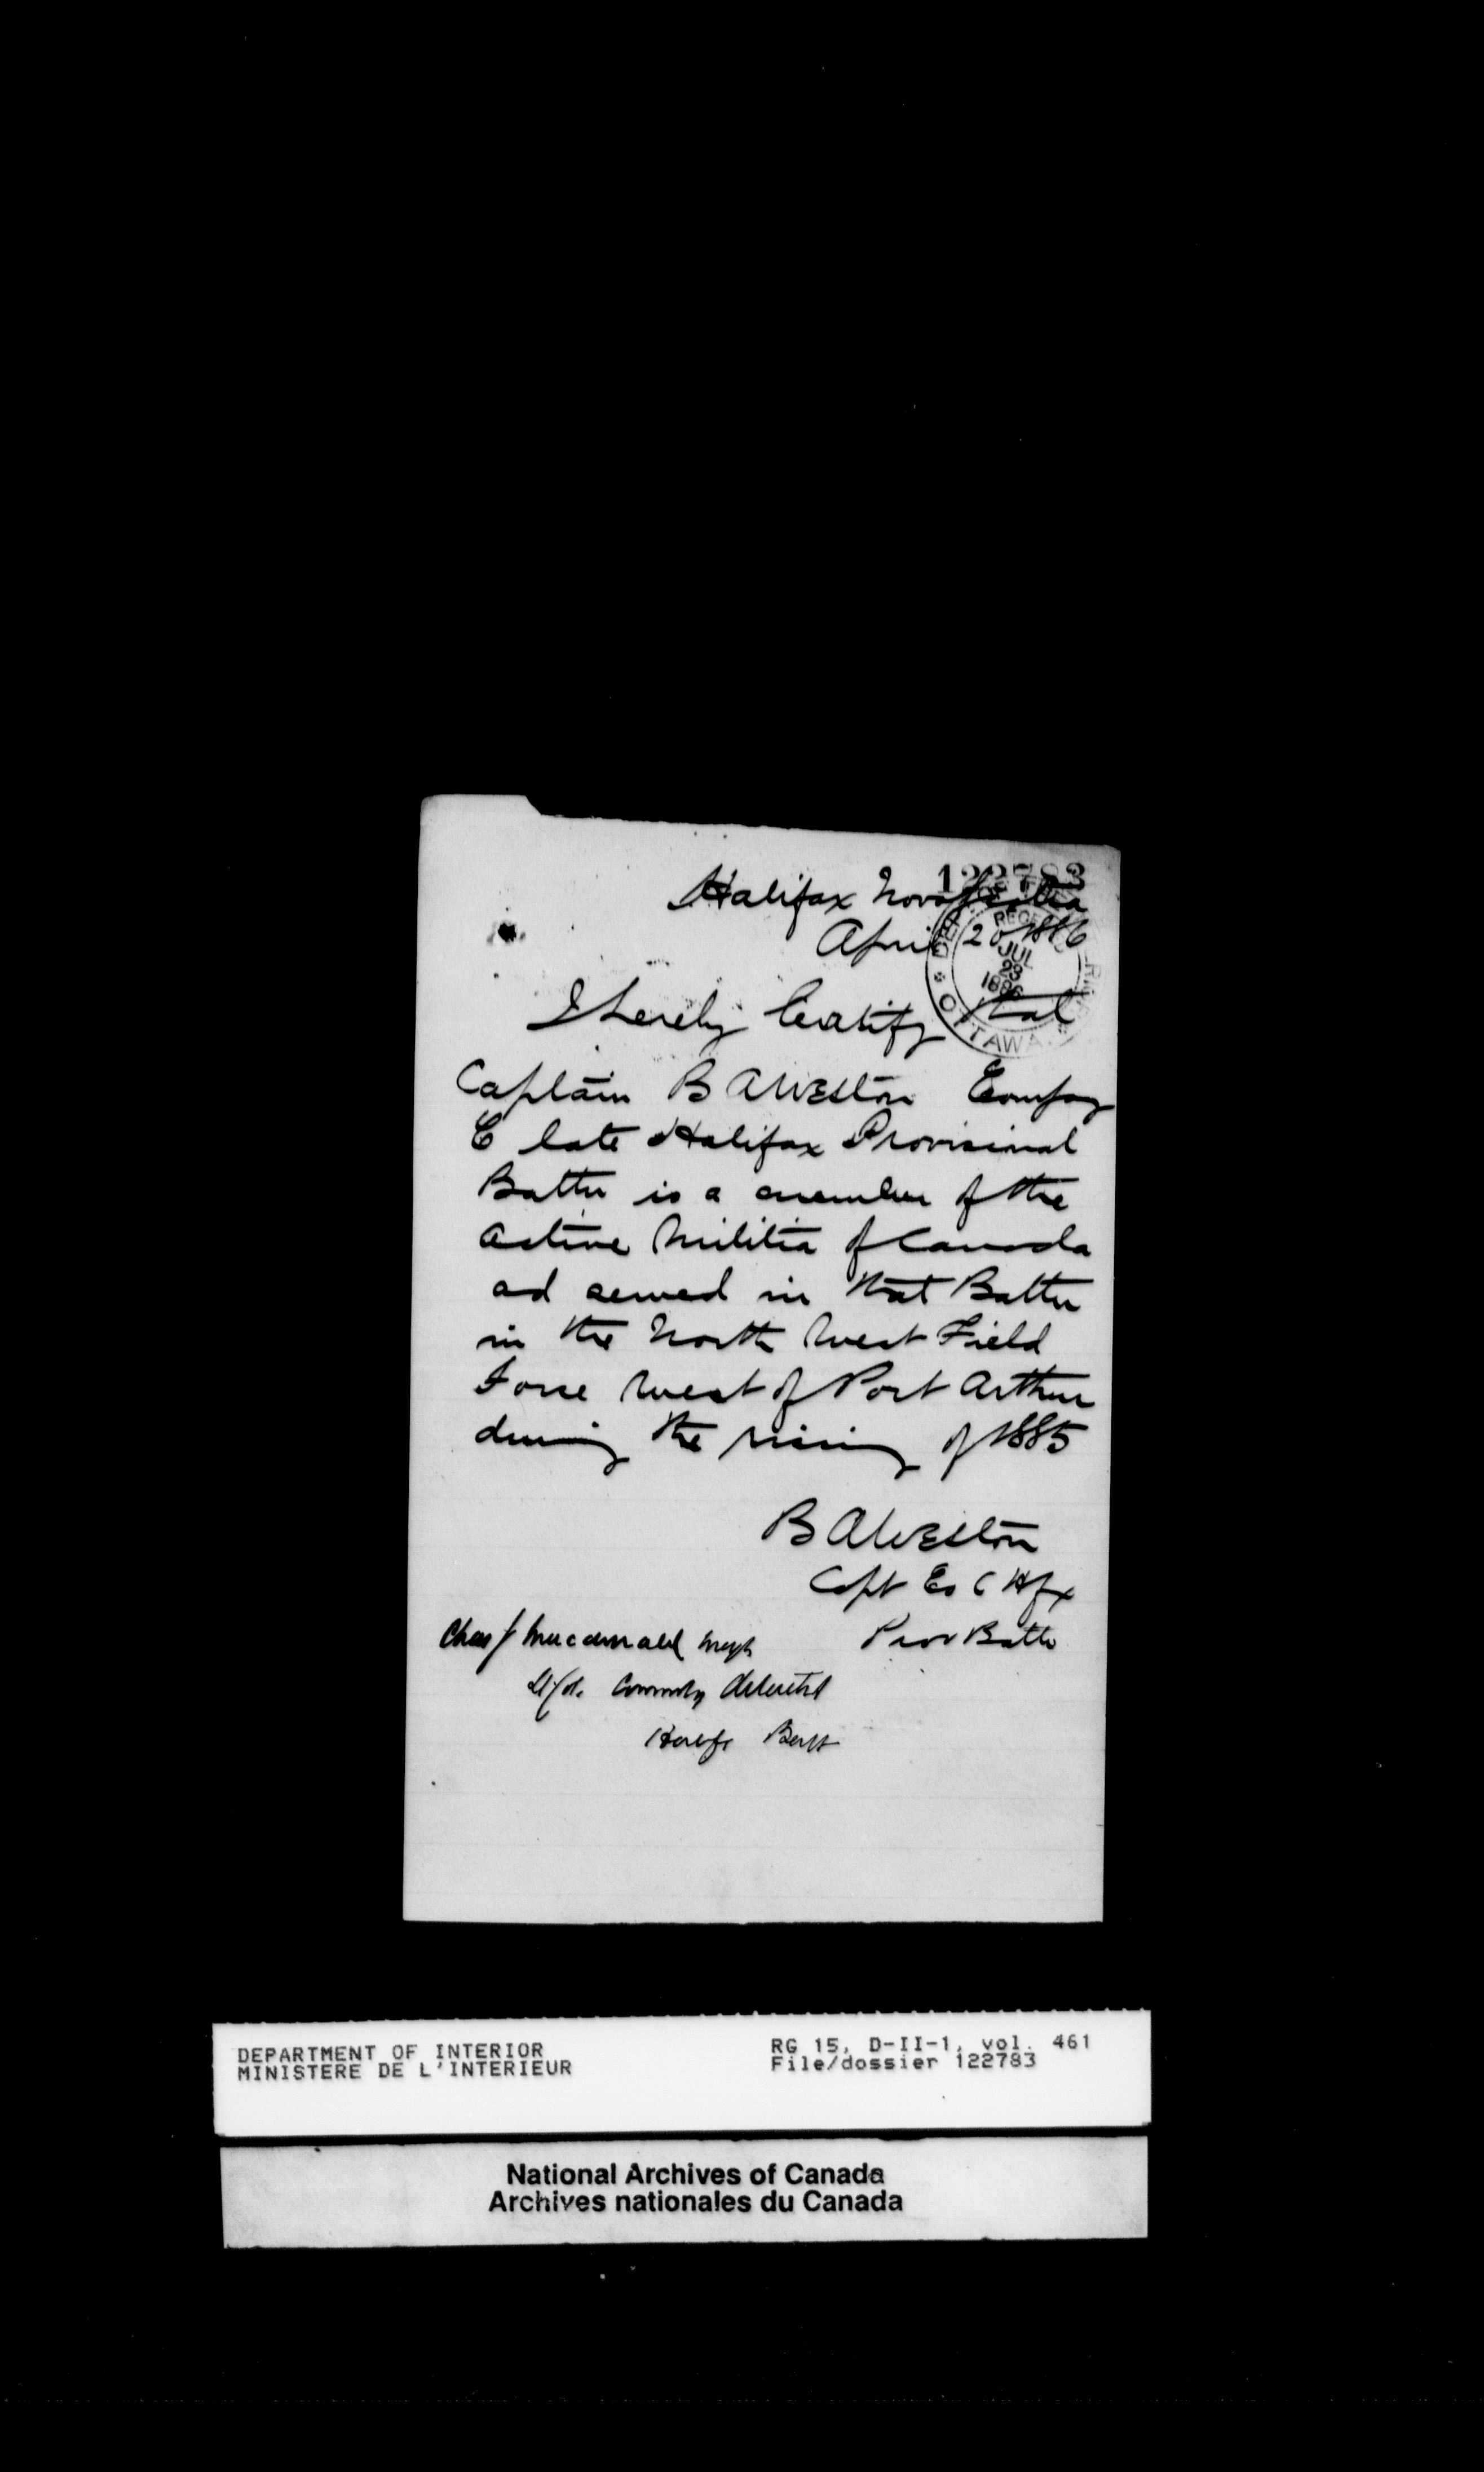 122783
Halifax Nova Scotia
April 20 1886
DEP
RECE
JUL
23
1886
OTTAWA
I hereby Certify that
Captain B A Weston Company
C late Halifax Provisinal
Battn is a member of the
Active Militia of Canada
ad served in that Battn
in the North West Field
Force West of Port Arthur
during the rising of 1885
B A Weston
Capt Co C Hfx
Prov Battn
Chas J Macdonald
Lt Col.
Halifx Batt
DEPARTMENT OF INTERIOR
MINISTERE DE L'INTERIEUR
RG 15, D-II-1, vol. 461
File/dossier 122783
National Archives of Canada
Archives nationales du Canada